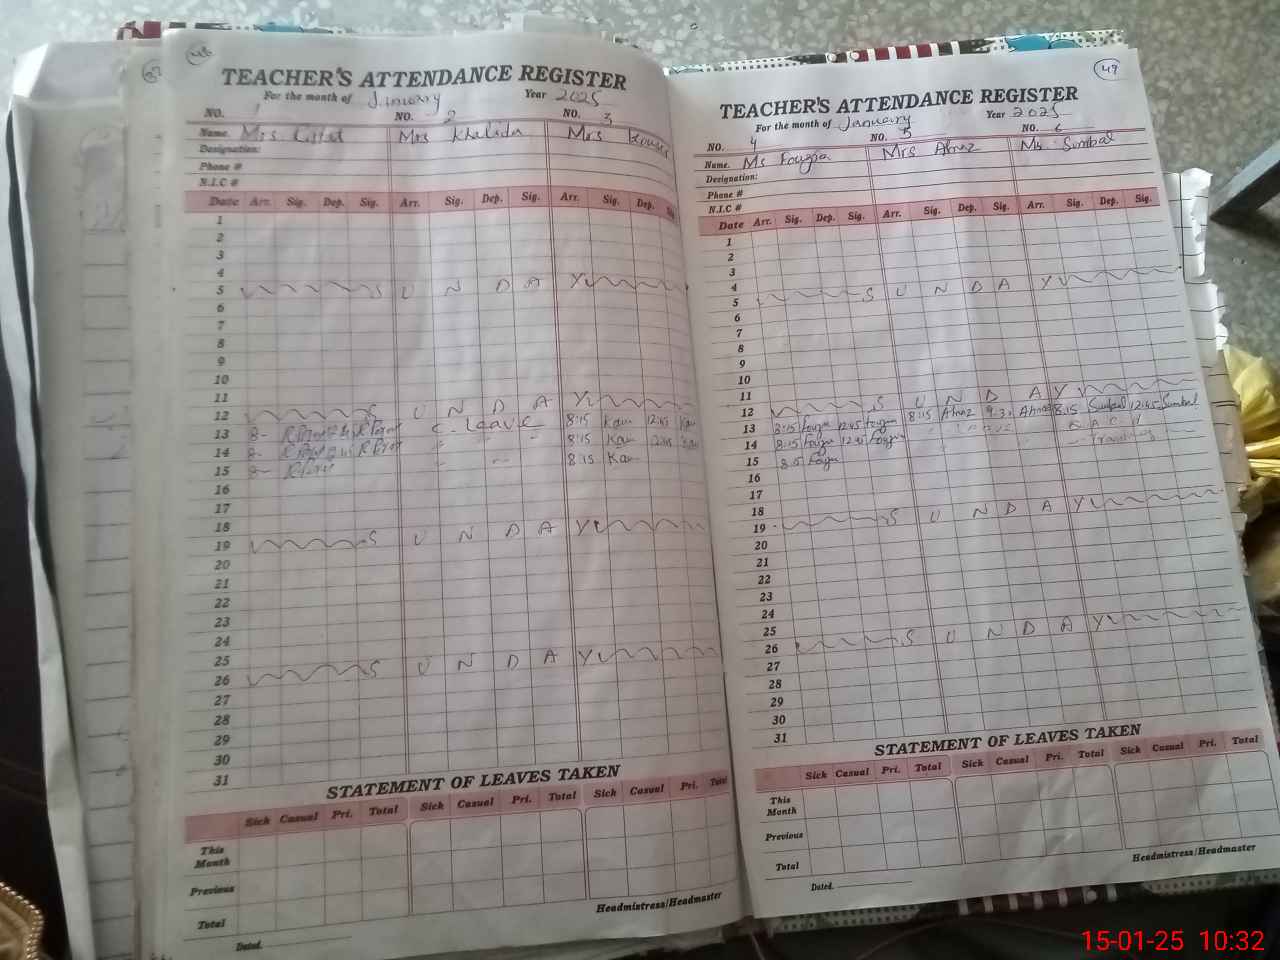 48
TEACHER'S ATTENDANCE REGISTER
For the month of January Year 2025
NO. 1 NO. 2 NO. 3
Name. Mrs Mrs Khalida Mrs Kousar
Designation:
Phone #
N.I.C #
Date Arr. Sig. Dep. Sig. Arr. Sig. Dep. Sig. Arr. Sig. Dep. Sig.
1
2
3
4
5 S U N D A Y
6
7
8
9
10
11
12 S U N D A Y
13 8- C. leave 8:15 Kau 12:45 Kau
14 8- " " 8:15 Kau 12:45 Kau
15 8- " " 8:15 Kau
16
17
18
19 S U N D A Y
20
21
22
23
24
25
26 S U N D A Y
27
28
29
30
31
STATEMENT OF LEAVES TAKEN
Sick Casual Pri. Total Sick Casual Pri. Total Sick Casual Pri. Total
This Month
Previous
Total
Headmistress/Headmaster
Dated.
49
TEACHER'S ATTENDANCE REGISTER
For the month of January Year 2025
NO. 4 NO. 5 NO. 6
Name. Ms Fougia Mrs Ms Sumbal
Designation:
Phone #
N.I.C #
Date Arr. Sig. Dep. Sig. Arr. Sig. Dep. Sig. Arr. Sig. Dep. Sig.
1
2
3
4
5 S U N D A Y
6
7
8
9
10
11
12 S U N D A Y
13 8:15 Fougia 12:45 Fougia 8:15 9:30 8:15 Sumbal 12:45 Sumbal
14 8:15 Fougia 12:45 Fougia
15 8:15 Fougia Training
16
17
18
19 S U N D A Y
20
21
22
23
24
25
26 S U N D A Y
27
28
29
30
31
STATEMENT OF LEAVES TAKEN
Sick Casual Pri. Total Sick Casual Pri. Total Sick Casual Pri. Total
This Month
Previous
Total
Headmistress/Headmaster
Dated.
15-01-25 10:32